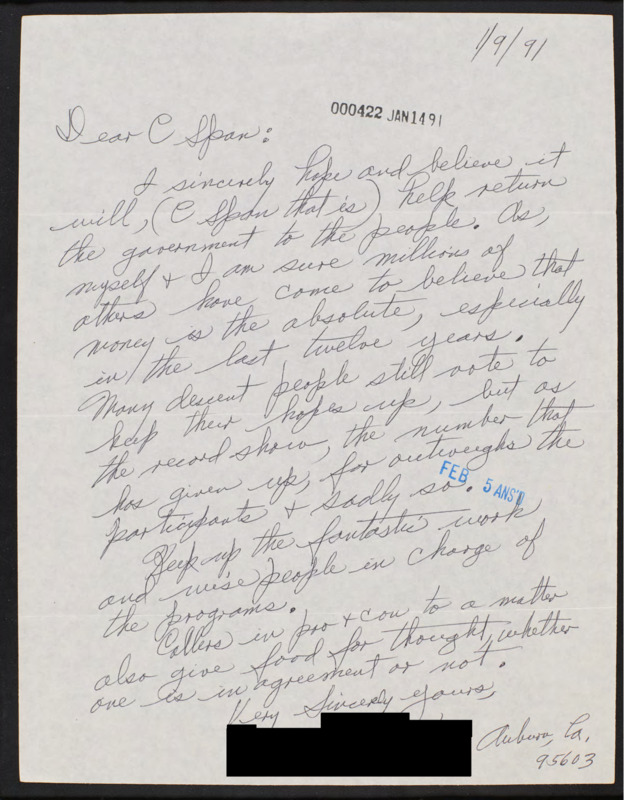 1/9/91
000422 JAN1491
Dear C Span:
I sincerely hope and believe it
will, (C Span that is) help return
the government to the people. As,
myself & I am sure millions of
others have come to believe that
money is the absolute, especially
in the last twelve years.
Many descent people still vote to
keep their hopes up, but as
the record show, the number that
has given up, far outweighs the
participants & sadly so.
FEB 5 ANS'D
Keep up the fantastic work
and wise people in charge of
the programs.
Callers in pro & con to a matter
also give food for thought, whether
one is in agreement or not.
Very Sincerely yours,
Auburn, Ca.
95603